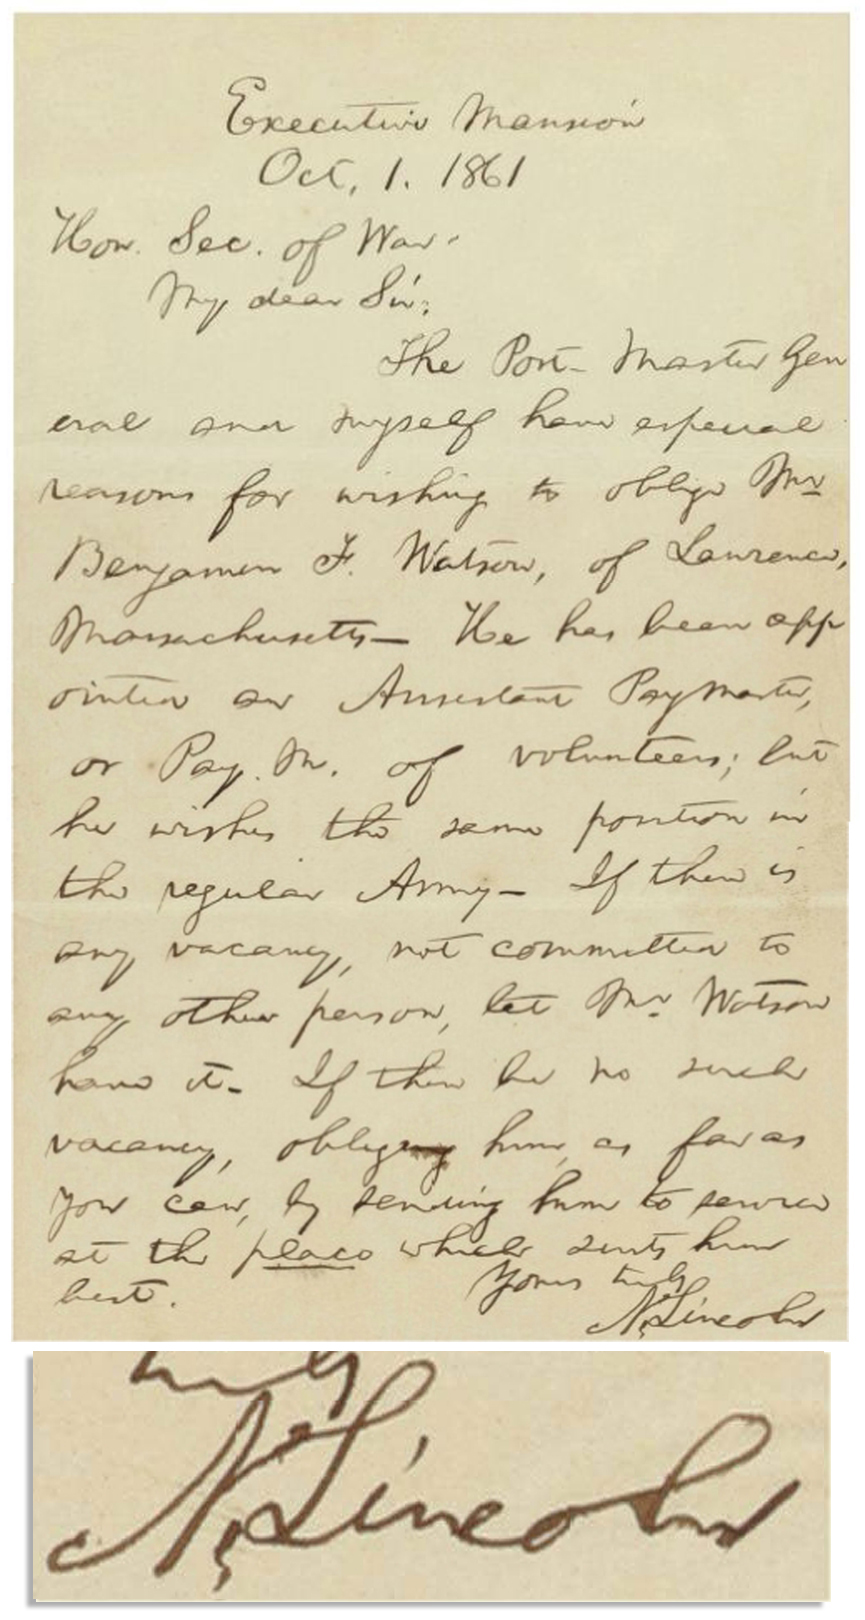 Executive Mansion
Oct, 1. 1861
Hon. Sec. of War.
My dear Sir:
The Post-Master Gen
eral and myself have especial
reasons for wishing to oblige Mr
Benjamin F. Watson, of Lawrence,
Massachusetts— He has been app
ointed an Assistant Paymaster,
or Pay. M. of volunteers; but
he wishes the same position in
the regular Army— If there is
any vacancy, not committed to
any other person, let Mr. Watson
have it— If there be no such
vacancy, oblige him, as far as
you can, by sending him to service
at the place which suits him
best.
Yours truly
A. Lincoln
truly
A. Lincoln